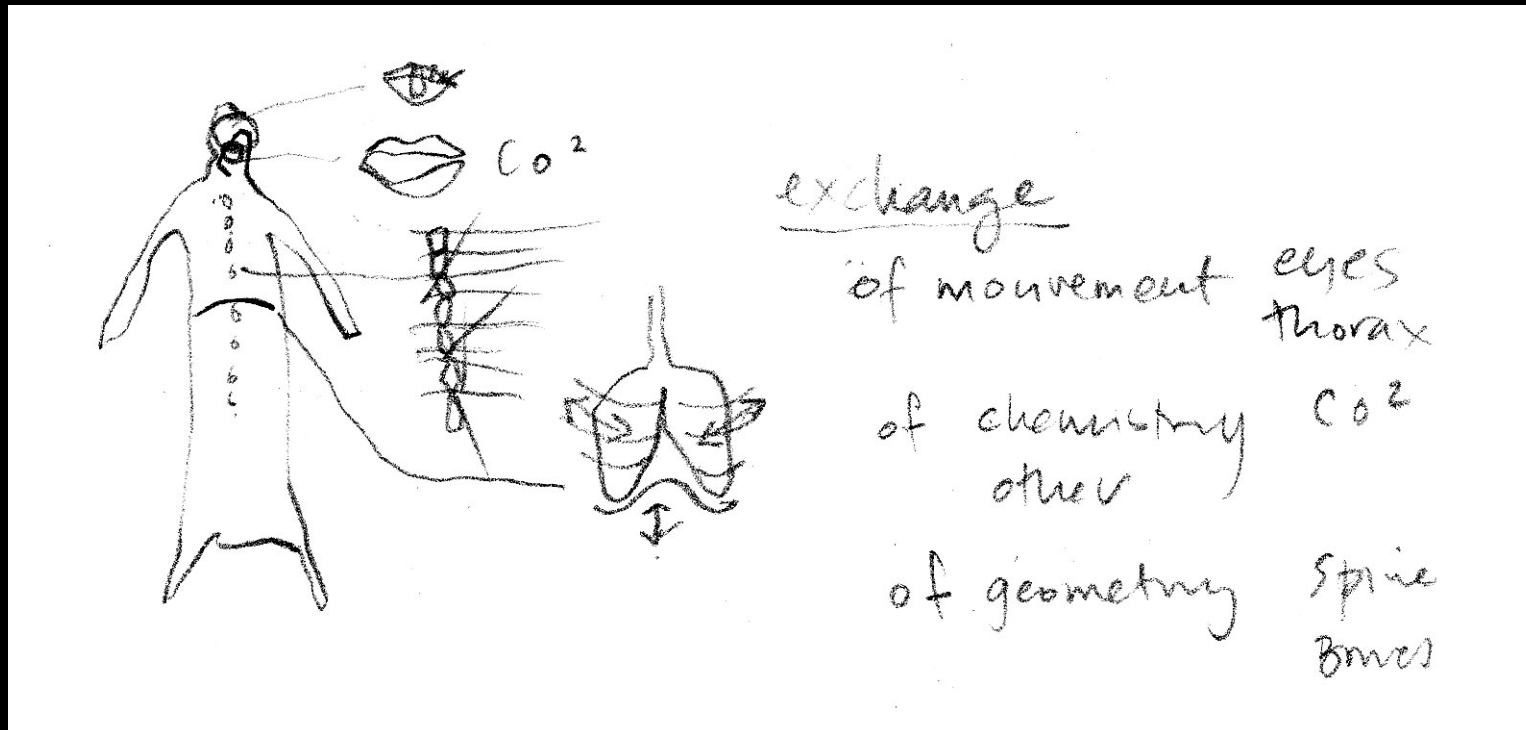 Co²
exchange
of mouvement eyes
thorax
of chemistry Co²
other
of geometry Spine
Bones